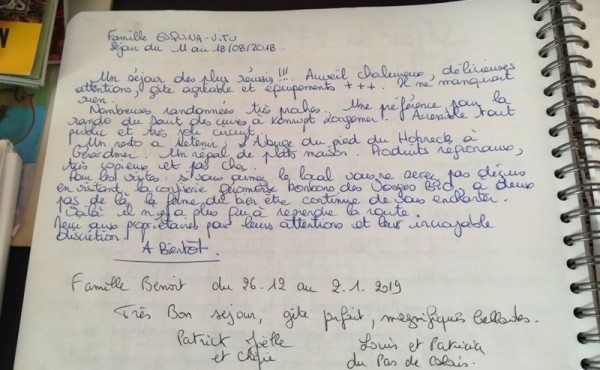 Famille ESPUNA-VITU
Séjour du 11 au 18/08/2018.
Un séjour des plus réussis !!! Accueil chaleureux, délicieuses
attentions, gîte agréable et équipements +++. Il ne manquait
rien.
Nombreuses randonnées très proches. Une préférence pour la
rando du Saut des cuves à Accessible tout
public et très joli circuit.
Un resto à retenir : l'Auberge du pied du Hohneck à
Gérardmer. Un régal de plats maison. Produits régionaux,
très copieux et pas cher.
Pour les visites, si vous aimez le local vous ne serez pas déçus
en visitant la confiserie géromoise bonbons des Vosges à deux
pas de là, la ferme du bien être continue de vous enchanter.
Voilà il n'y a plus qu'à reprendre la route.
Merci aux propriétaires pour leurs attentions et leur incroyable
discrétion !
A Bientôt.
Famille Benoit du 26.12 au 2.1.2019
Très Bon séjour, gîte parfait, magnifiques ballades.
Patrick Joëlle Louis et Patricia
et du Pas de Calais.